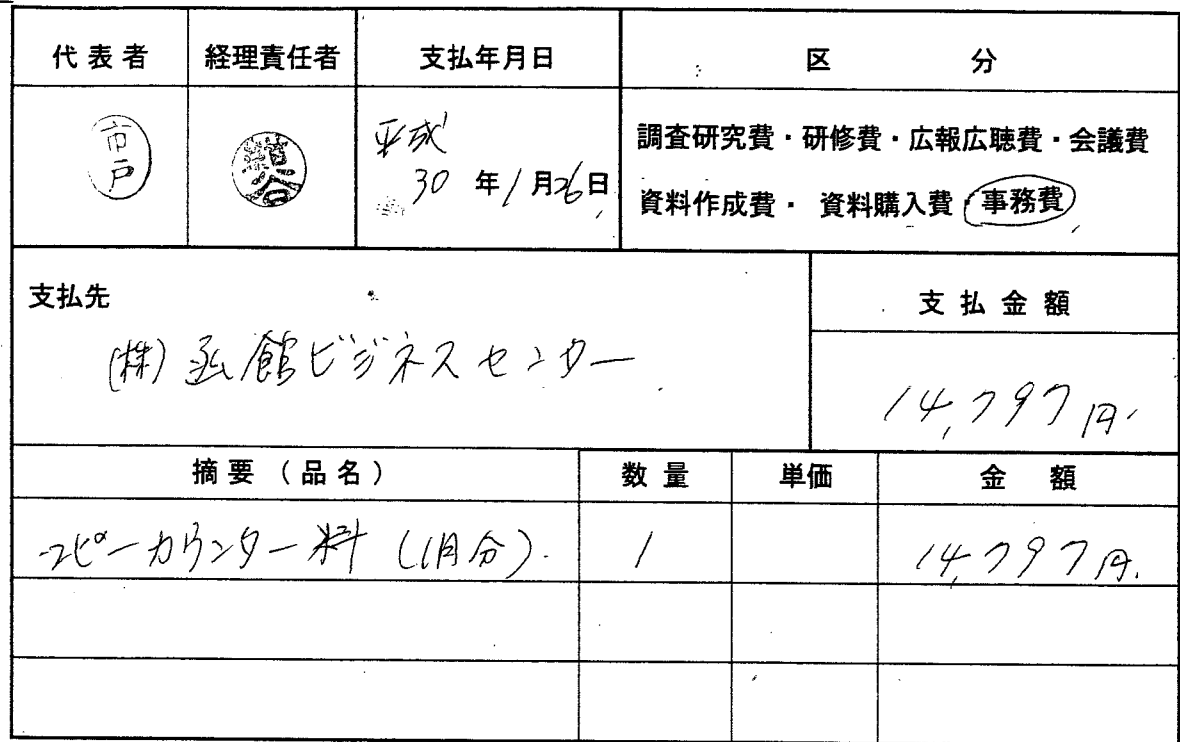 代表者 経理責任者 支払年月日 区分
市戸
平成
30年1月26日
調査研究費・研修費・広報広聴費・会議費
資料作成費・資料購入費・事務費
支払先 支払金額
(株)函館ビジネスセンター
14,797円
摘要(品名) 数量 単価 金額
コピーカウンター料(1月分). 1 14,797円.